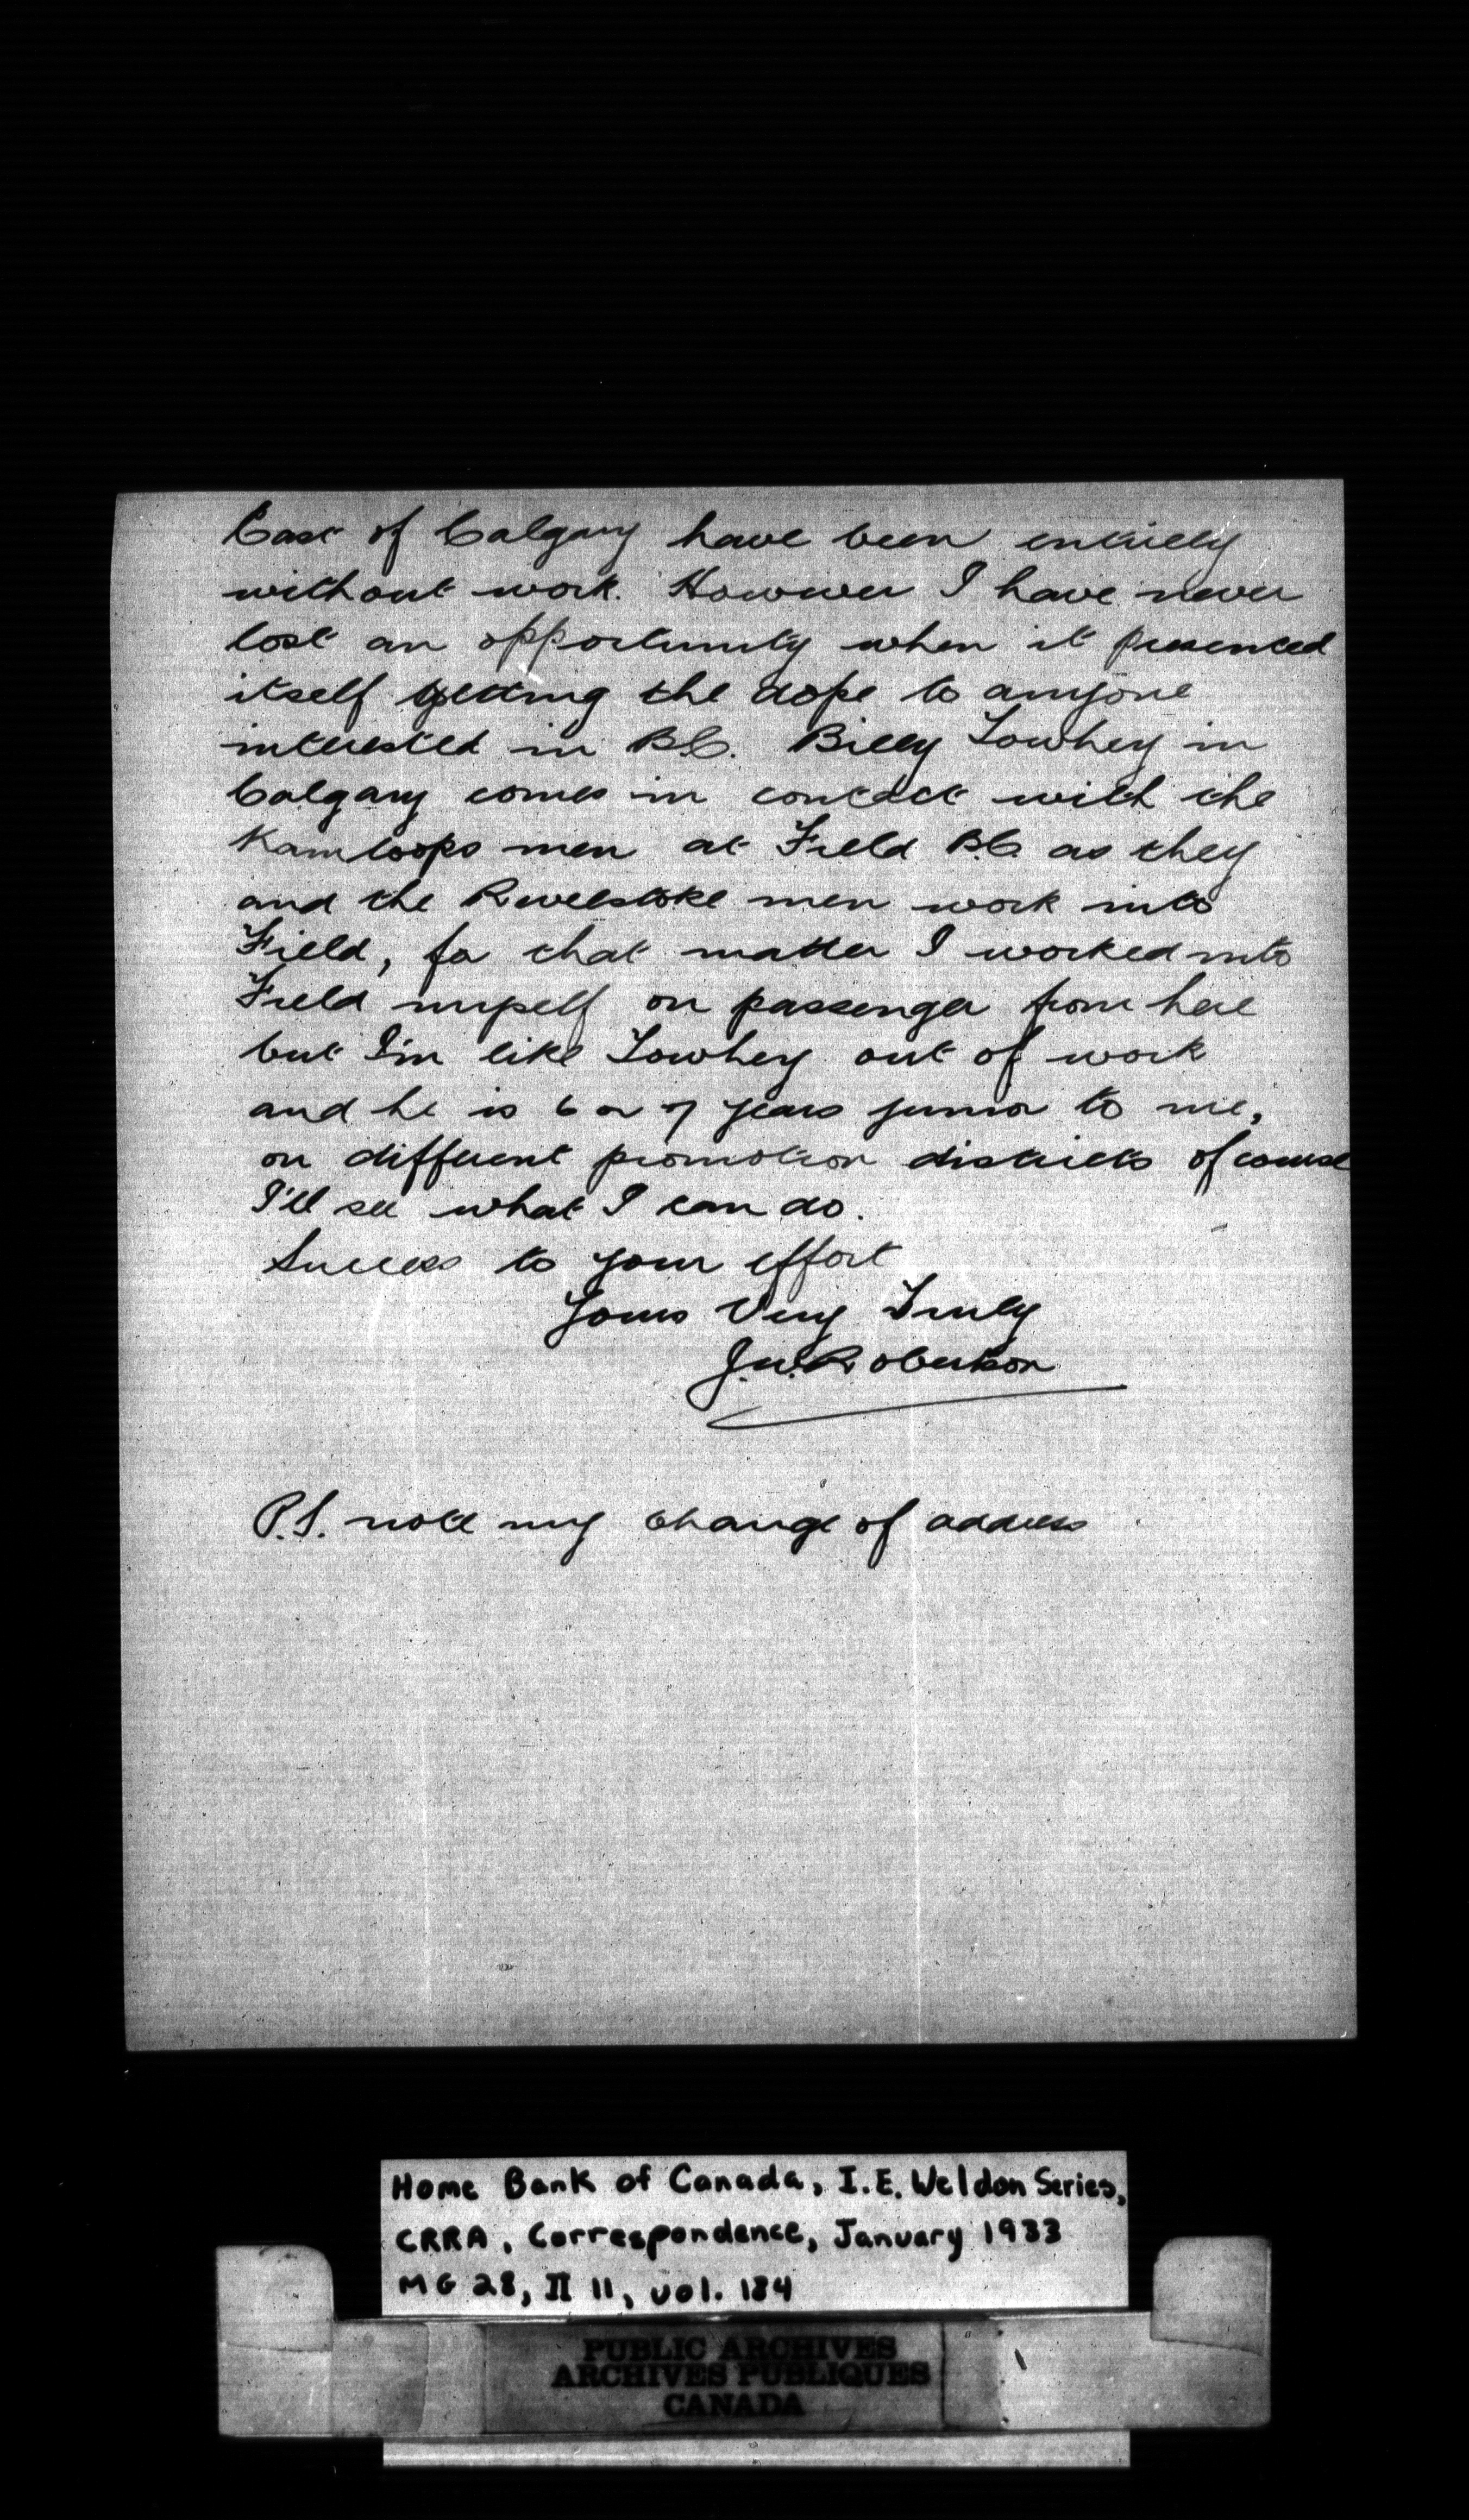 East of Calgary have been entirely
without work. However I have never
lost an opportunity when it presented
itself getting the dope to anyone
interested in B.C. Billy Towhey in
Calgary comes in contact with the
Kamloops men at Field B.C. as they
and the Revelstoke men work into
Field, for that matter I worked into
Field myself on passenger from here
but I'm like Towhey out of work
and he is 6 or 7 years junior to me,
on different promotion districts of course
I'll see what I can do.
Success to your effort
Yours Very Truly
J.W. Robertson
P.S. note my change of address
Home Bank of Canada, I.E. Weldon Series,
CRRA, Correspondence, January 1933
MG 28, II 11, vol. 184
PUBLIC ARCHIVES
ARCHIVES PUBLIQUES
CANADA